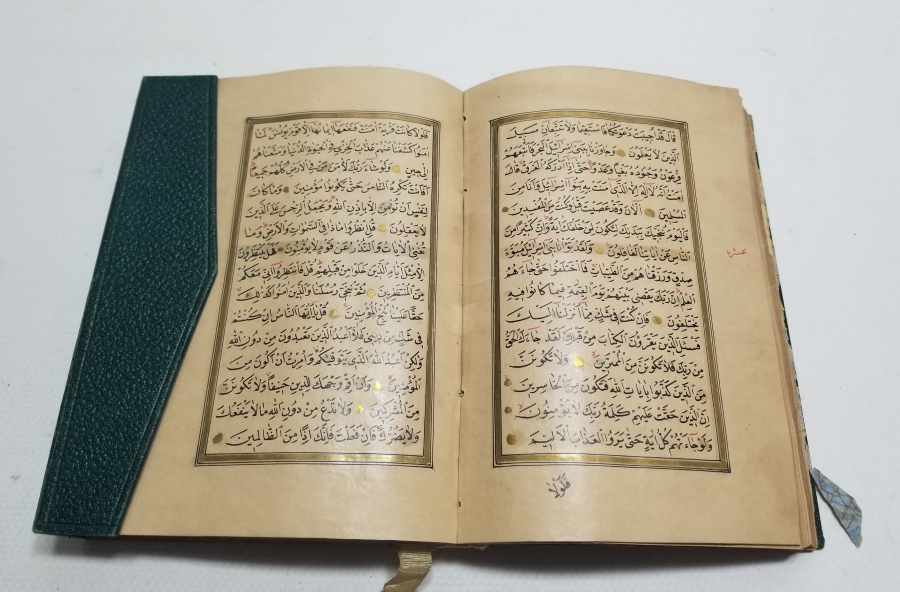 قال قد اجيبت دعوتكما فاستقيما ولا تتبعان سبيل
الذين لا يعلمون وجاوزنا ببني اسرائيل البحر فاتبعهم
فرعون وجنوده بغيا وعدوا حتى اذا ادركه الغرق قال
امنت انه لا اله الا الذي امنت به بنوا اسرائيل وانا من
المسلمين آلان وقد عصيت قبل وكنت من المفسدين
فاليوم ننجيك ببدنك لتكون لمن خلفك اية وان كثيرا من
الناس عن اياتنا لغافلون ولقد بوانا بني اسرائيل مبوء
صدق ورزقناهم من الطيبات فما اختلفوا حتى جاءهم
العلم ان ربك يقضي بينهم يوم القيمة فيما كانوا فيه
يختلفون فان كنت في شك مما انزلنا اليك
فسئل الذين يقرؤن الكتاب من قبلك لقد جاءك الحق
من ربك فلا تكونن من الممترين ولا تكونن
من الذين كذبوا بايات الله فتكون من الخاسرين
ان الذين حقت عليهم كلمة ربك لا يؤمنون
ولو جاءتهم كل اية حتى يروا العذاب الاليم
فلولا
فلولا كانت قرية امنت فنفعها ايمانها الا قوم يونس لما
امنوا كشفنا عنهم عذاب الخزي في الحيوة الدنيا ومتعناهم
الى حين ولو شاء ربك لامن من في الارض كلهم جميعا
افانت تكره الناس حتى يكونوا مؤمنين وما كان
لنفس ان تؤمن الا باذن الله ويجعل الرجس على الذين
لا يعقلون قل انظروا ماذا في السموات والارض وما
تغني الايات والنذر عن قوم لا يؤمنون فهل ينتظرون
الا مثل ايام الذين خلوا من قبلهم قل فانتظروا اني معكم
من المنتظرين ثم ننجي رسلنا والذين امنوا كذلك
حقا علينا ننج المؤمنين قل يا ايها الناس ان كنتم
في شك من ديني فلا اعبد الذين تعبدون من دون الله
ولكن اعبد الله الذي يتوفيكم وامرت ان اكون من
المؤمنين وان اقم وجهك للدين حنيفا ولا تكونن
من المشركين ولا تدع من دون الله ما لا ينفعك
ولا يضرك فان فعلت فانك اذا من الظالمين